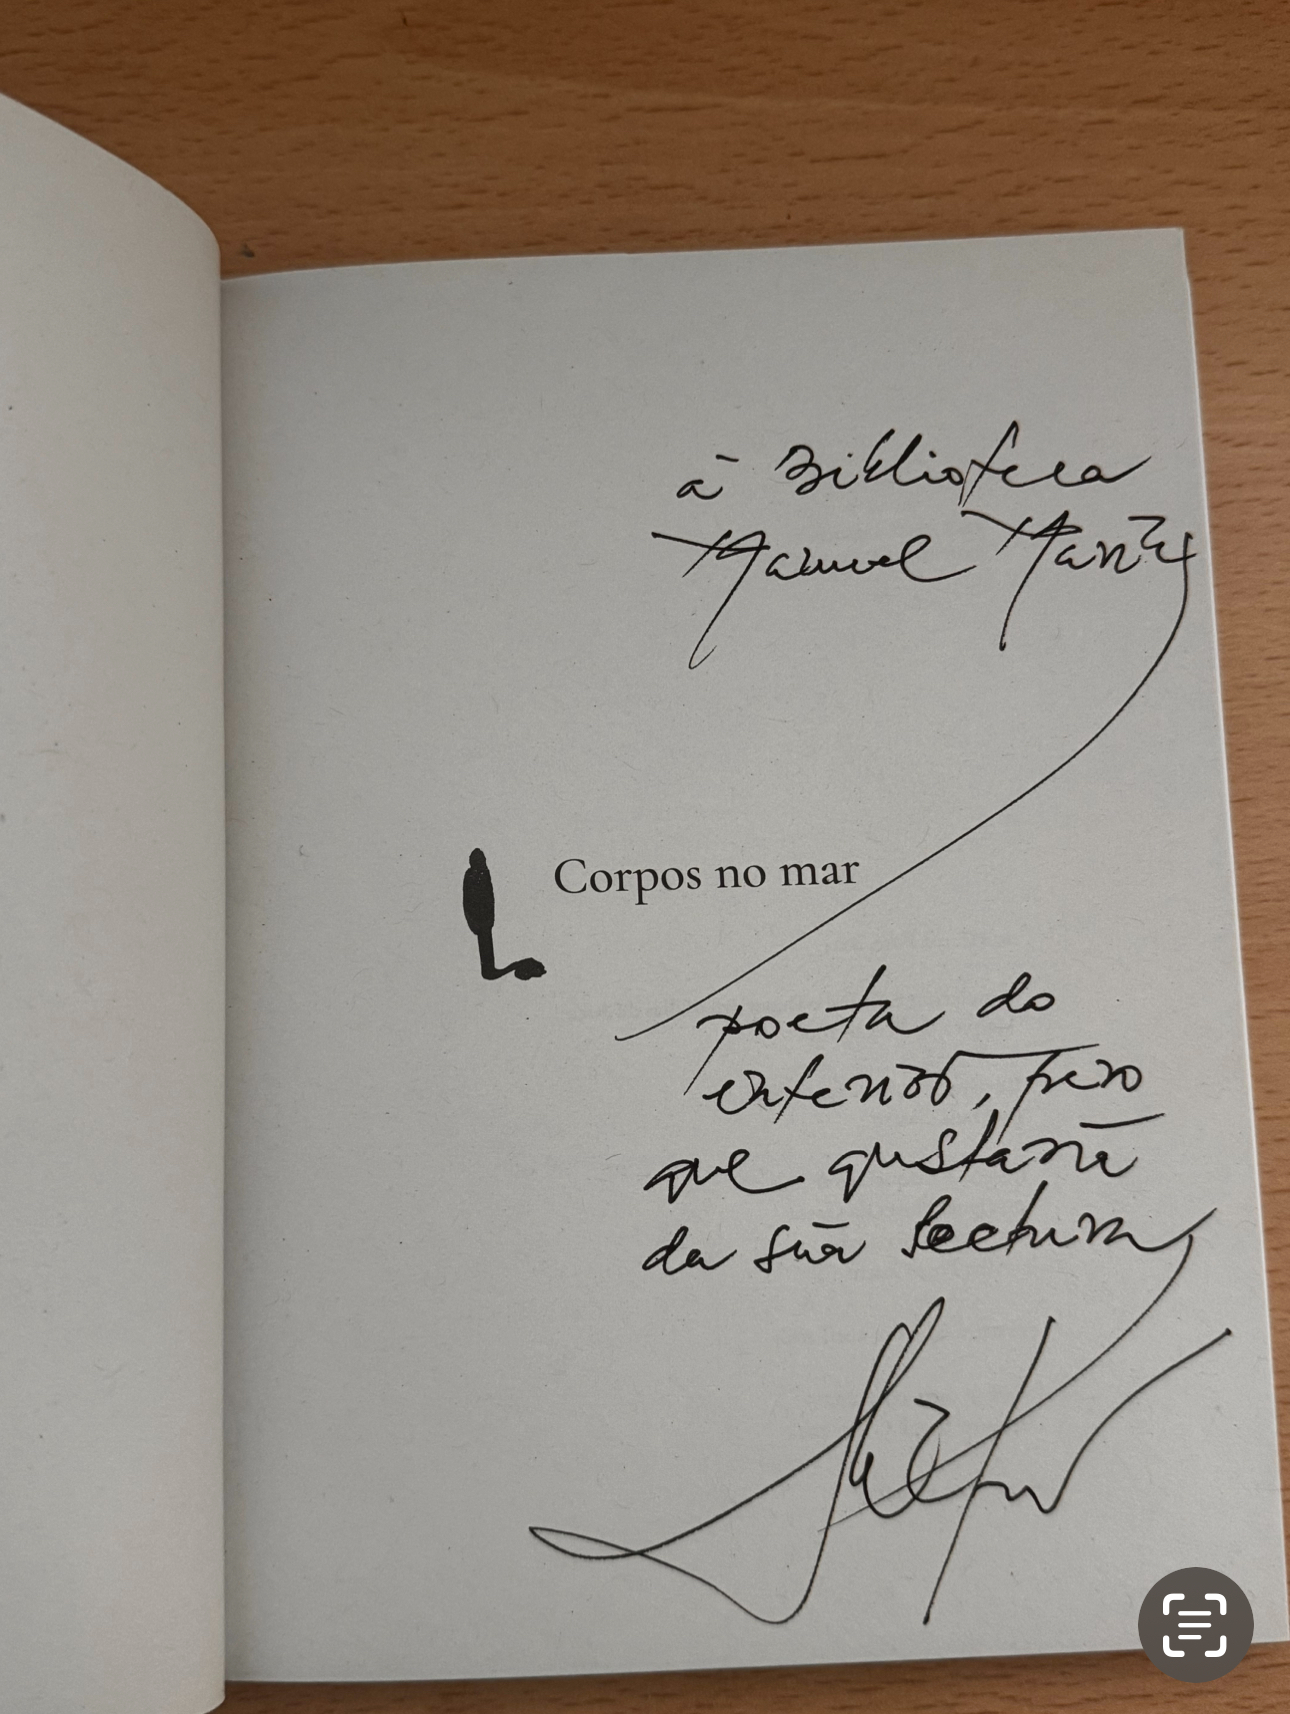 á Biblioteca
Manuel María
Corpos no mar
poeta do
interior, pero
que gustaría
da súa lectura